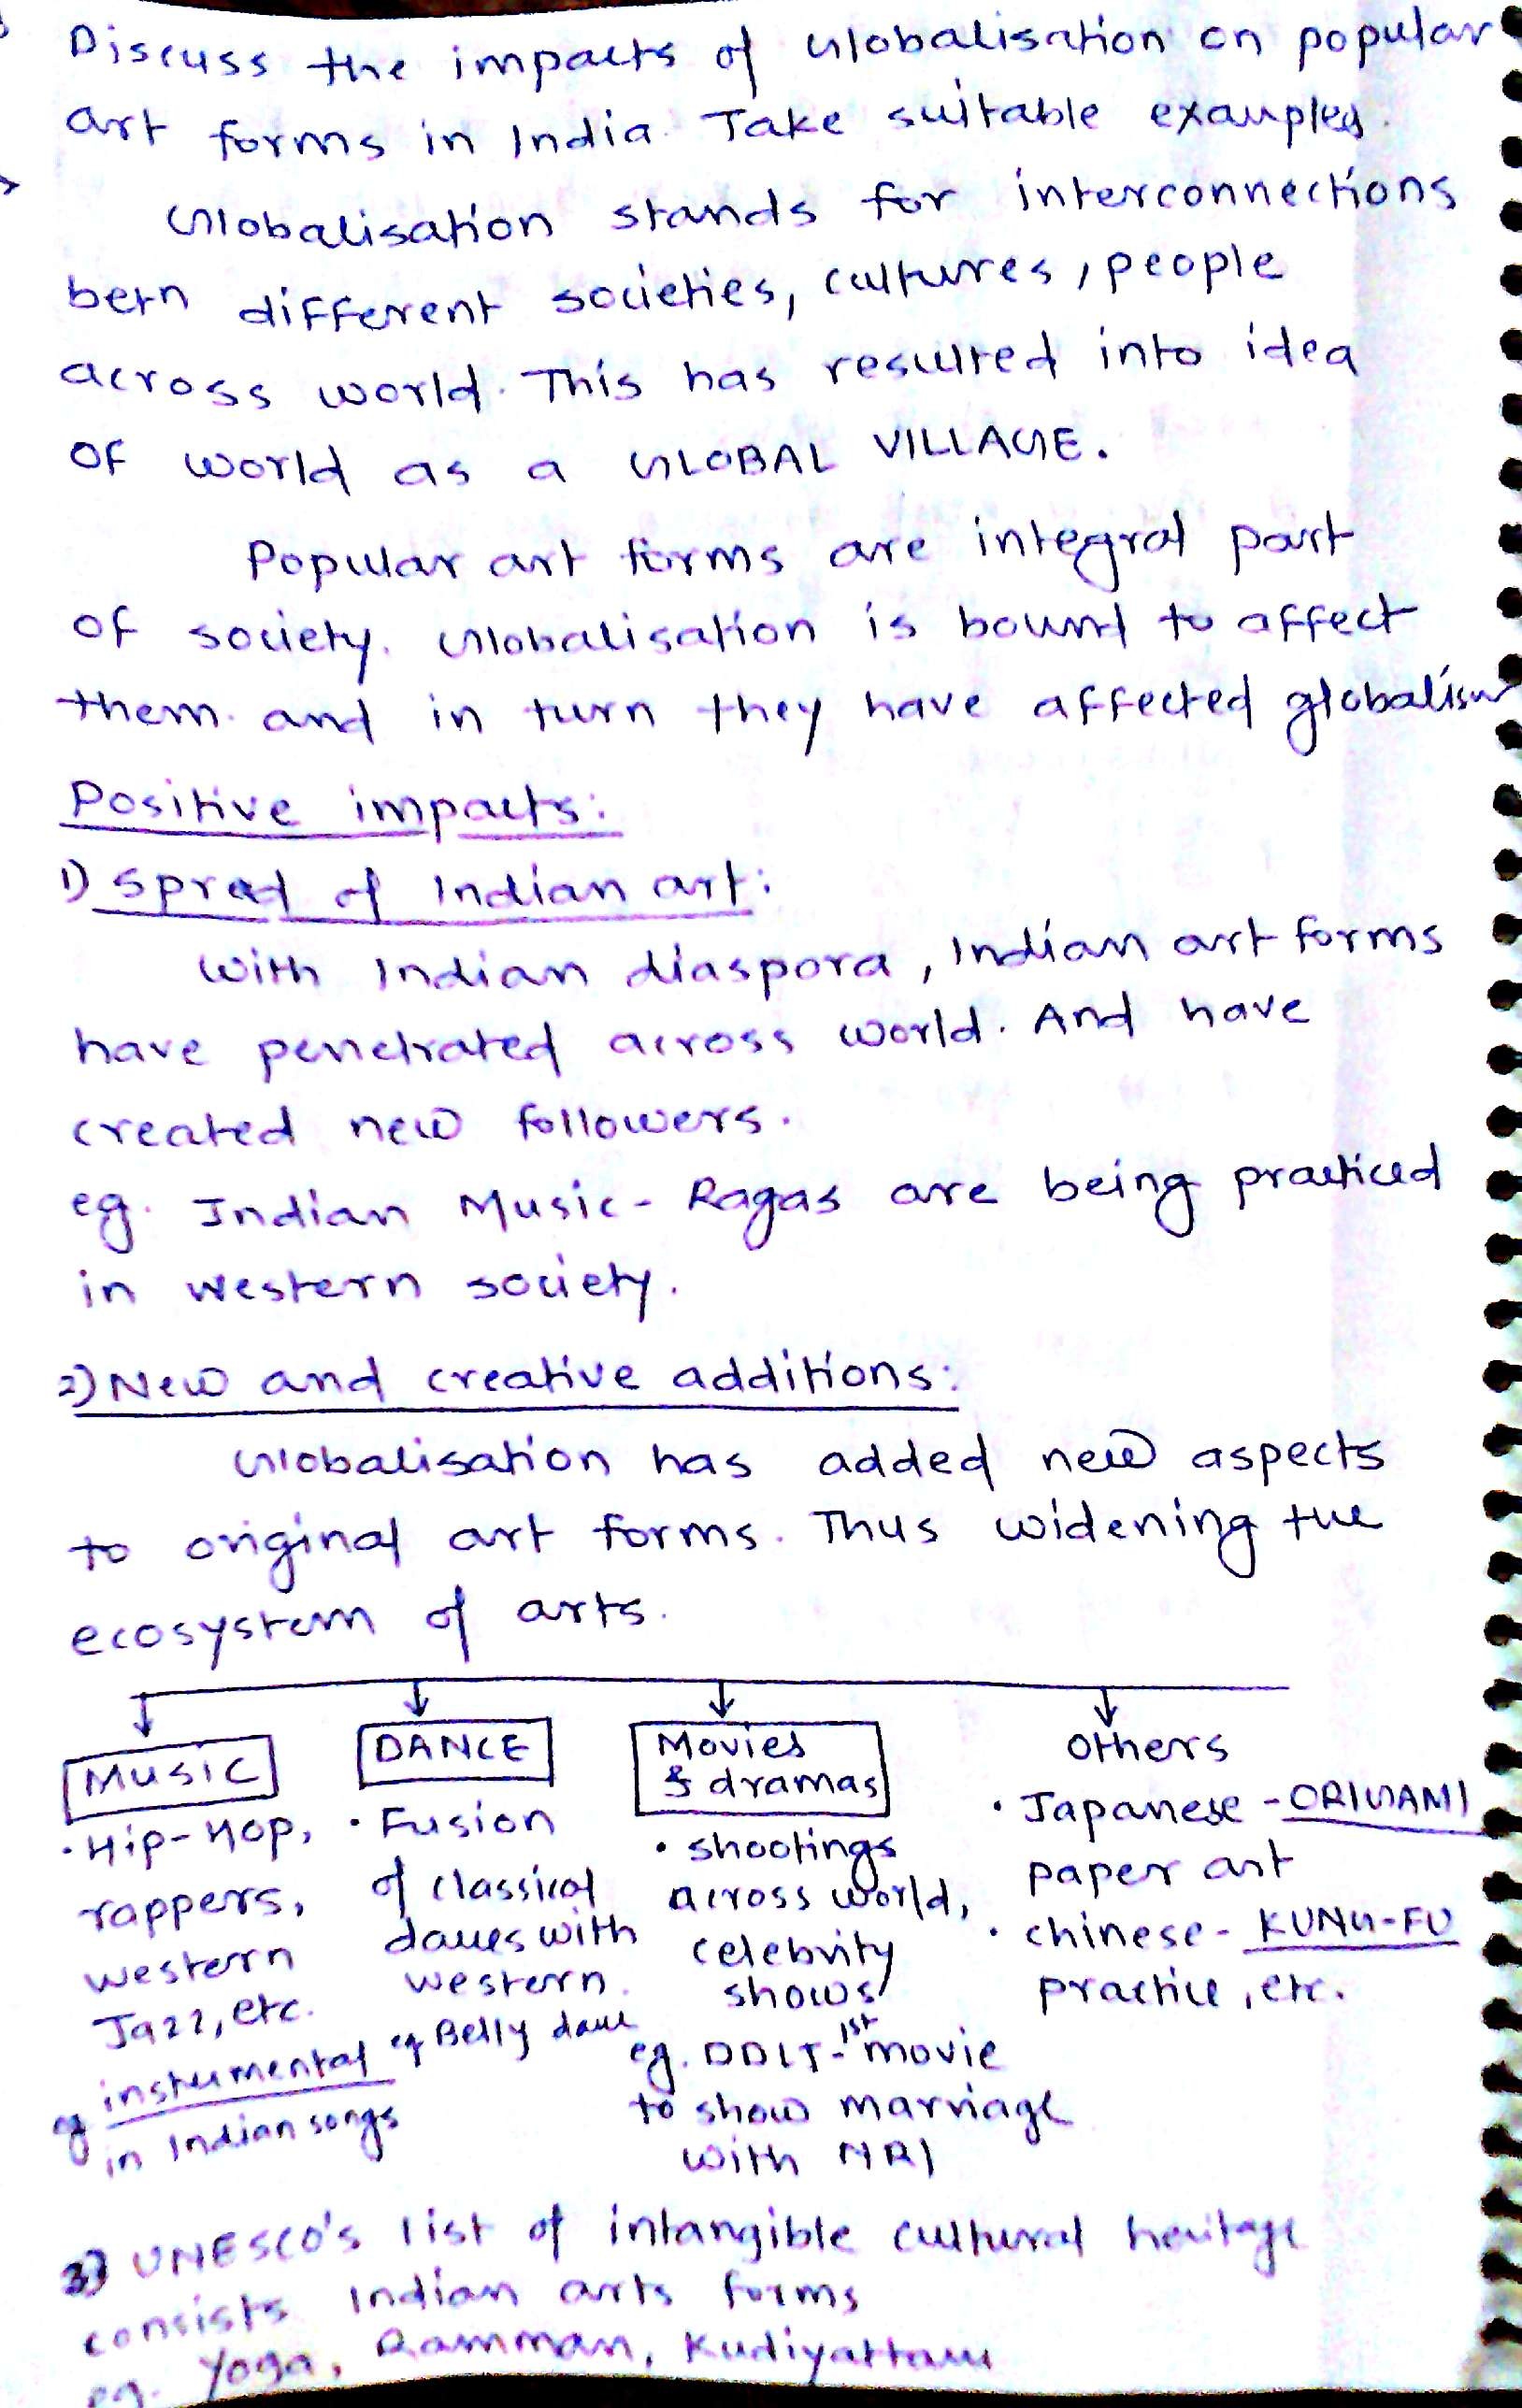 Discuss the impacts of Globalisation on popular
art forms in India. Take suitable examples.
Globalisation stands for interconnections
betn different societies, cultures, people
across world. This has resulted into idea
of world as a GLOBAL VILLAGE.
Popular art forms are integral part
of society. Globalisation is bound to affect
them. and in turn they have affected globalisn
Positive impacts:
1) Spred of Indian art:
With Indian diaspora, Indian art forms
have penetrated across world. And have
created new followers.
eg. Indian Music - Ragas are being practiced
in western society.
2) New and creative additions:
Globalisation has added new aspects
to original art forms. Thus widening the
ecosystem of arts.
MUSIC
• Hip-Hop,
rappers,
western
Jazz, etc.
eg instrumental
in Indian songs
DANCE
• Fusion
of classical
dances with
western.
eg Belly dance
Movies
& dramas
• shootings
across world,
celebrity
shows
eg. DDLJ - 1st movie
to show marriage
with NRI
Others
• Japanese - ORIGAMI
paper art
• chinese - KUNG-FU
practice, etc.
3) UNESCO's list of intangible cultural heritage
consists Indian arts forms
eg. Yoga, Ramman, Kudiyattam